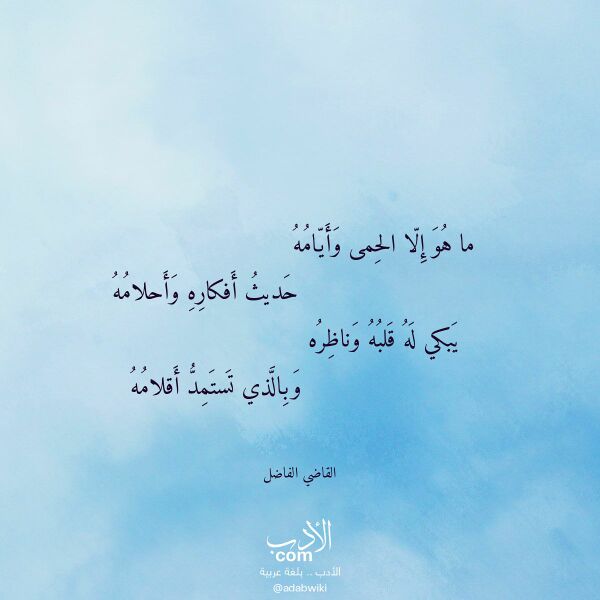 ما هُوَ إِلّا الحِمى وَأَيّامُهُ
حَديثُ أَفكارِهِ وَأَحلامُهُ
يَبكي لَهُ قَلبُهُ وَناظِرُه
وَبِالَّذي تَستَمِدُّ أَقلامُهُ
القاضي الفاضل
الأدب
com
الأدب .. بلغة عربية
@adabwiki